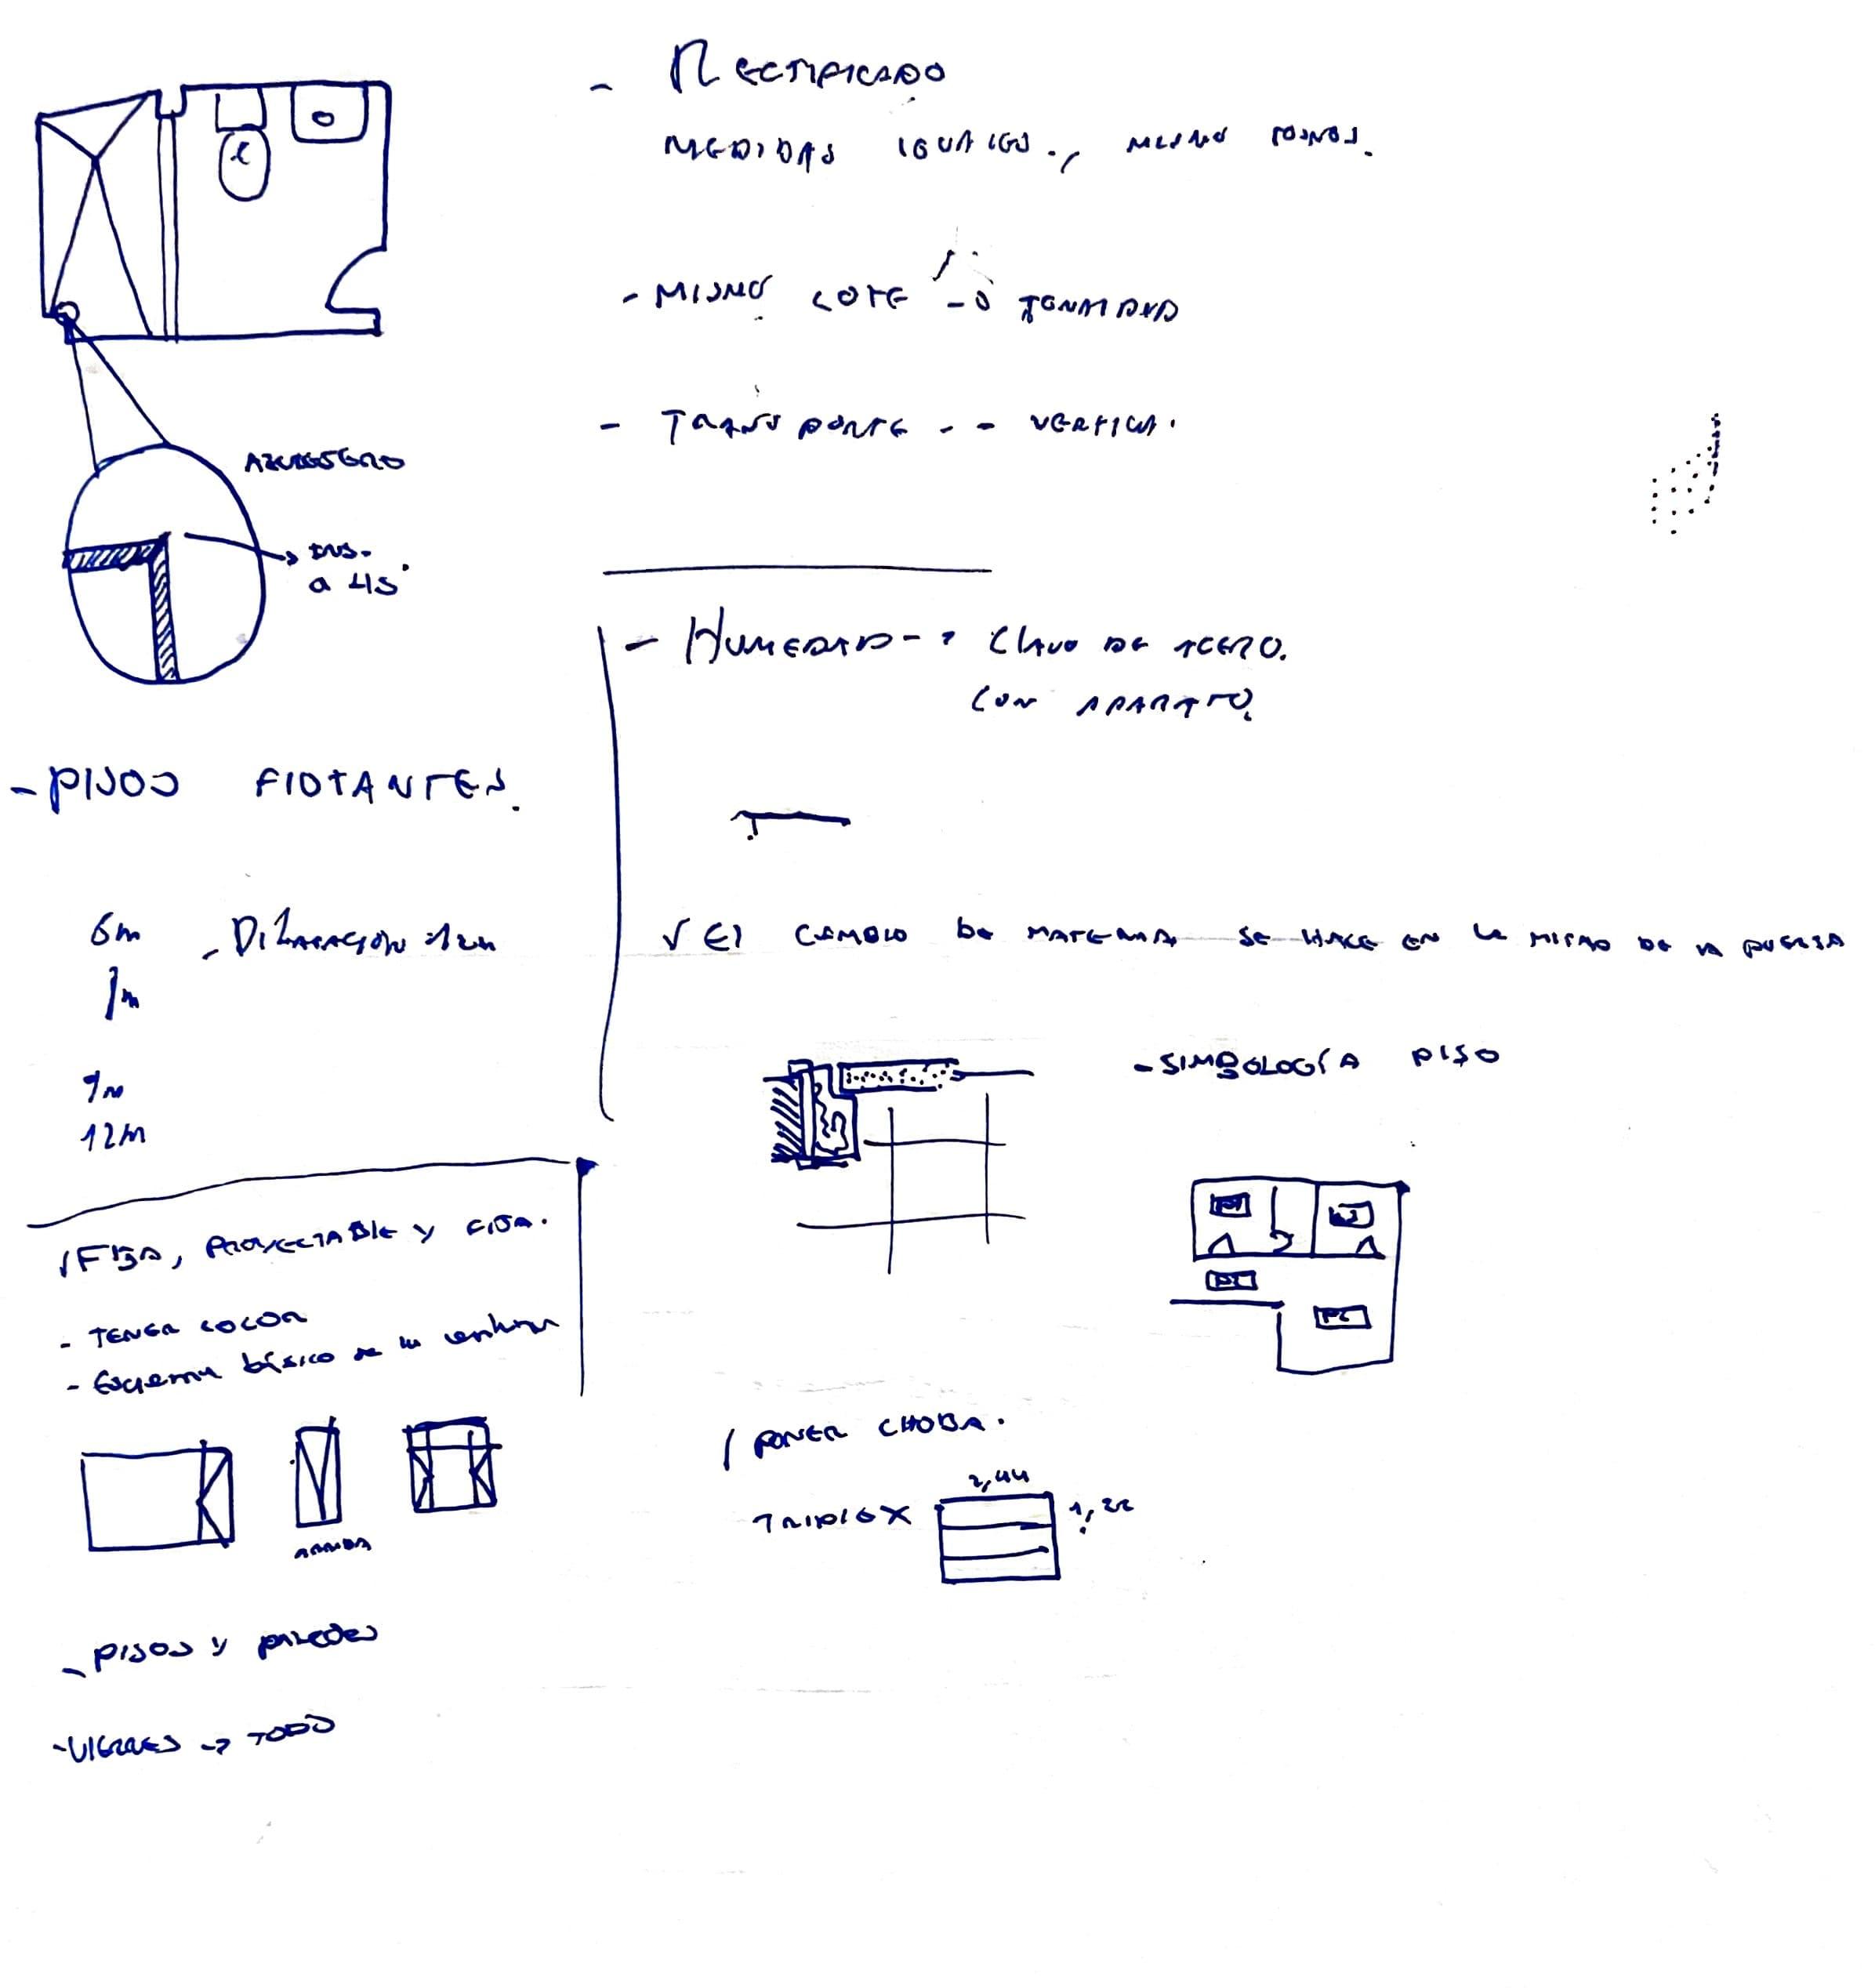 - RECTIFICADO
MEDIDAS IGUALES., MISMO
- MISMO LOTE -> TONALIDAD
- TRANSPORTE -- VERTICAL.
AZULEJERO
INS.
a 45°
- HUMEDAD -> CLAVO DE ACERO.
CON APARATO.
- PISOS FLOTANTES.
6m - DILATACIÓN
9m
12m
√ El CAMBIO DE MATERIAL SE HACE EN LA MITAD DE LA PUERTA
- SIMBOLOGÍA PISO
√ FIJA, PROYECTABLE Y
- TENER COLOR
- Esquema básico de la ventana
P1
P2
/ PONER
TRIPLEX 2,44 1,22
- PISOS Y PAREDES
- VIERNES -> TODO